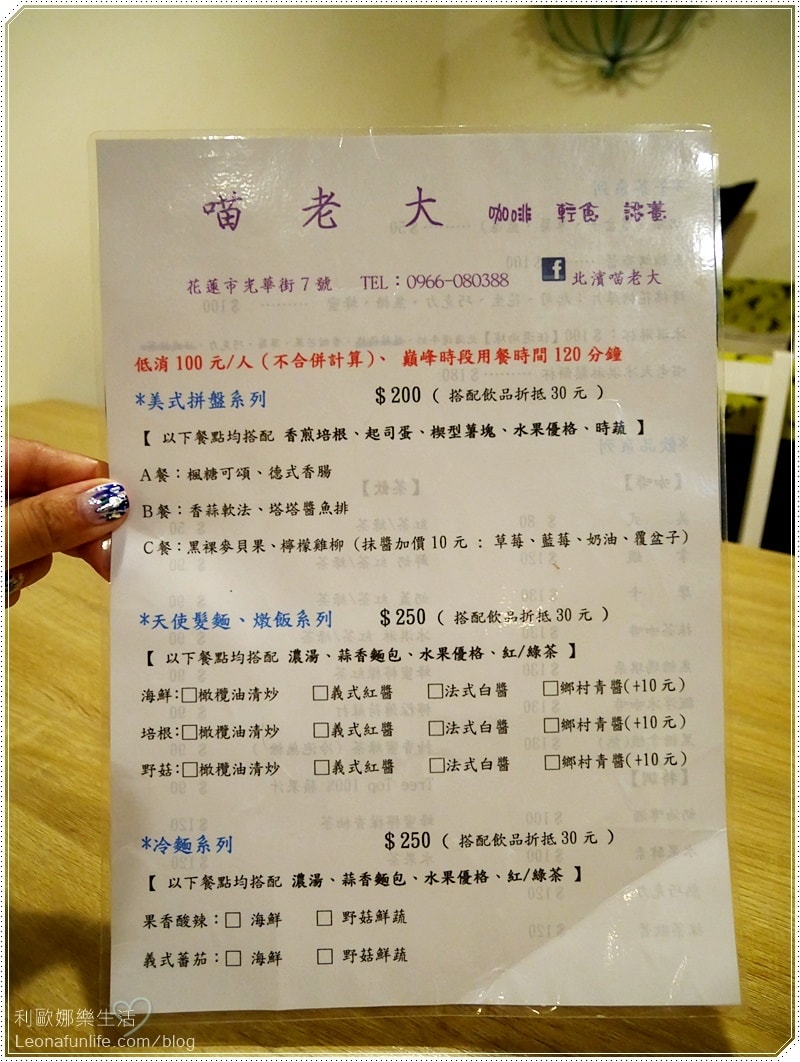 喵老大 咖啡 輕食 諮畫
花蓮市光華街7號 TEL：0966-080388 f 北濱喵老大
低消100元/人（不合併計算）、 巔峰時段用餐時間120分鐘
*美式拼盤系列 $200（ 搭配飲品折抵30元 ）
【 以下餐點均搭配 香煎培根、起司蛋、楔型薯塊、水果優格、時蔬 】
A餐：楓糖可頌、德式香腸
B餐：香蒜軟法、塔塔醬魚排
C餐：黑裸麥貝果、檸檬雞柳（抹醬加價10元 : 草莓、藍莓、奶油、覆盆子）
*天使髮麵、燉飯系列 $250（ 搭配飲品折抵30元 ）
【 以下餐點均搭配 濃湯、蒜香麵包、水果優格、紅/綠茶 】
海鮮:□橄欖油清炒 □義式紅醬 □法式白醬 □鄉村青醬(+10元)
培根:□橄欖油清炒 □義式紅醬 □法式白醬 □鄉村青醬(+10元)
野菇:□橄欖油清炒 □義式紅醬 □法式白醬 □鄉村青醬(+10元)
*冷麵系列 $250（ 搭配飲品折抵30元 ）
【 以下餐點均搭配 濃湯、蒜香麵包、水果優格、紅/綠茶 】
果香酸辣：□ 海鮮 □ 野菇鮮蔬
義式蕃茄：□ 海鮮 □ 野菇鮮蔬
利歐娜樂生活
Leonafunlife.com/blog